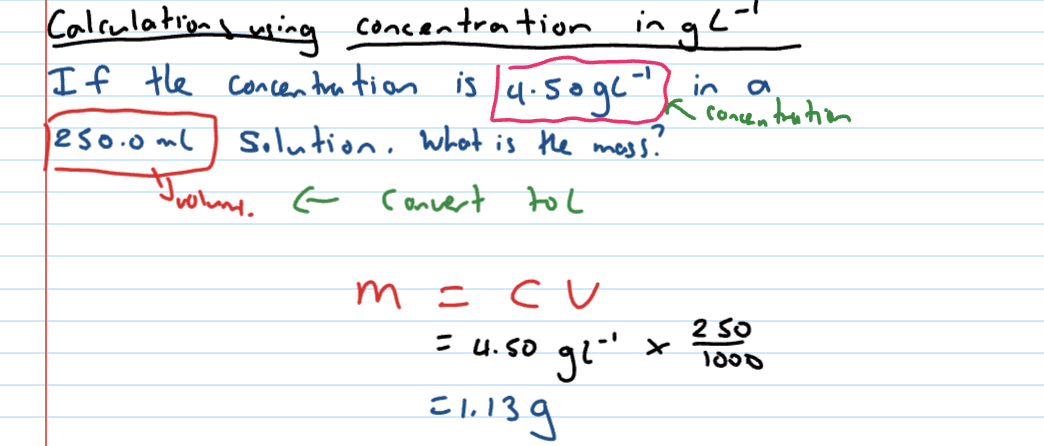 Calculations using concentration in gL⁻¹
If the concentration is 4.50gL⁻¹ in a
concentration
250.0 ml Solution. What is the mass?
volume. ← Convert to L
m = C V
= 4.50 gL⁻¹ × 250/1000
= 1.13g